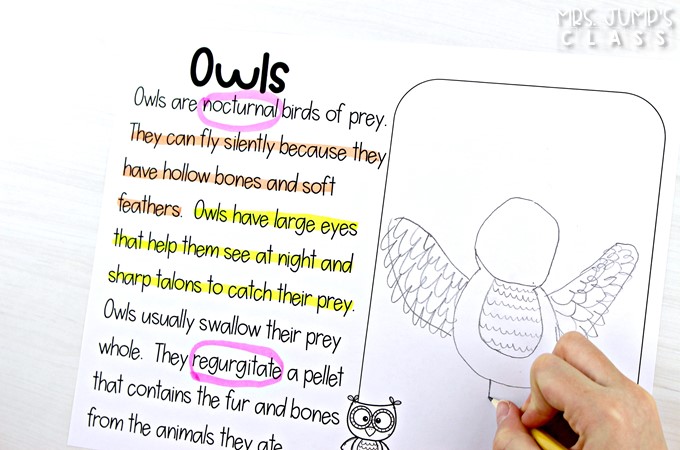 MRS. JUMP'S
CLASS
Owls
Owls are nocturnal birds of prey.
They can fly silently because they
have hollow bones and soft
feathers. Owls have large eyes
that help them see at night and
sharp talons to catch their prey.
Owls usually swallow their prey
whole. They regurgitate a pellet
that contains the fur and bones
from the animals they ate.